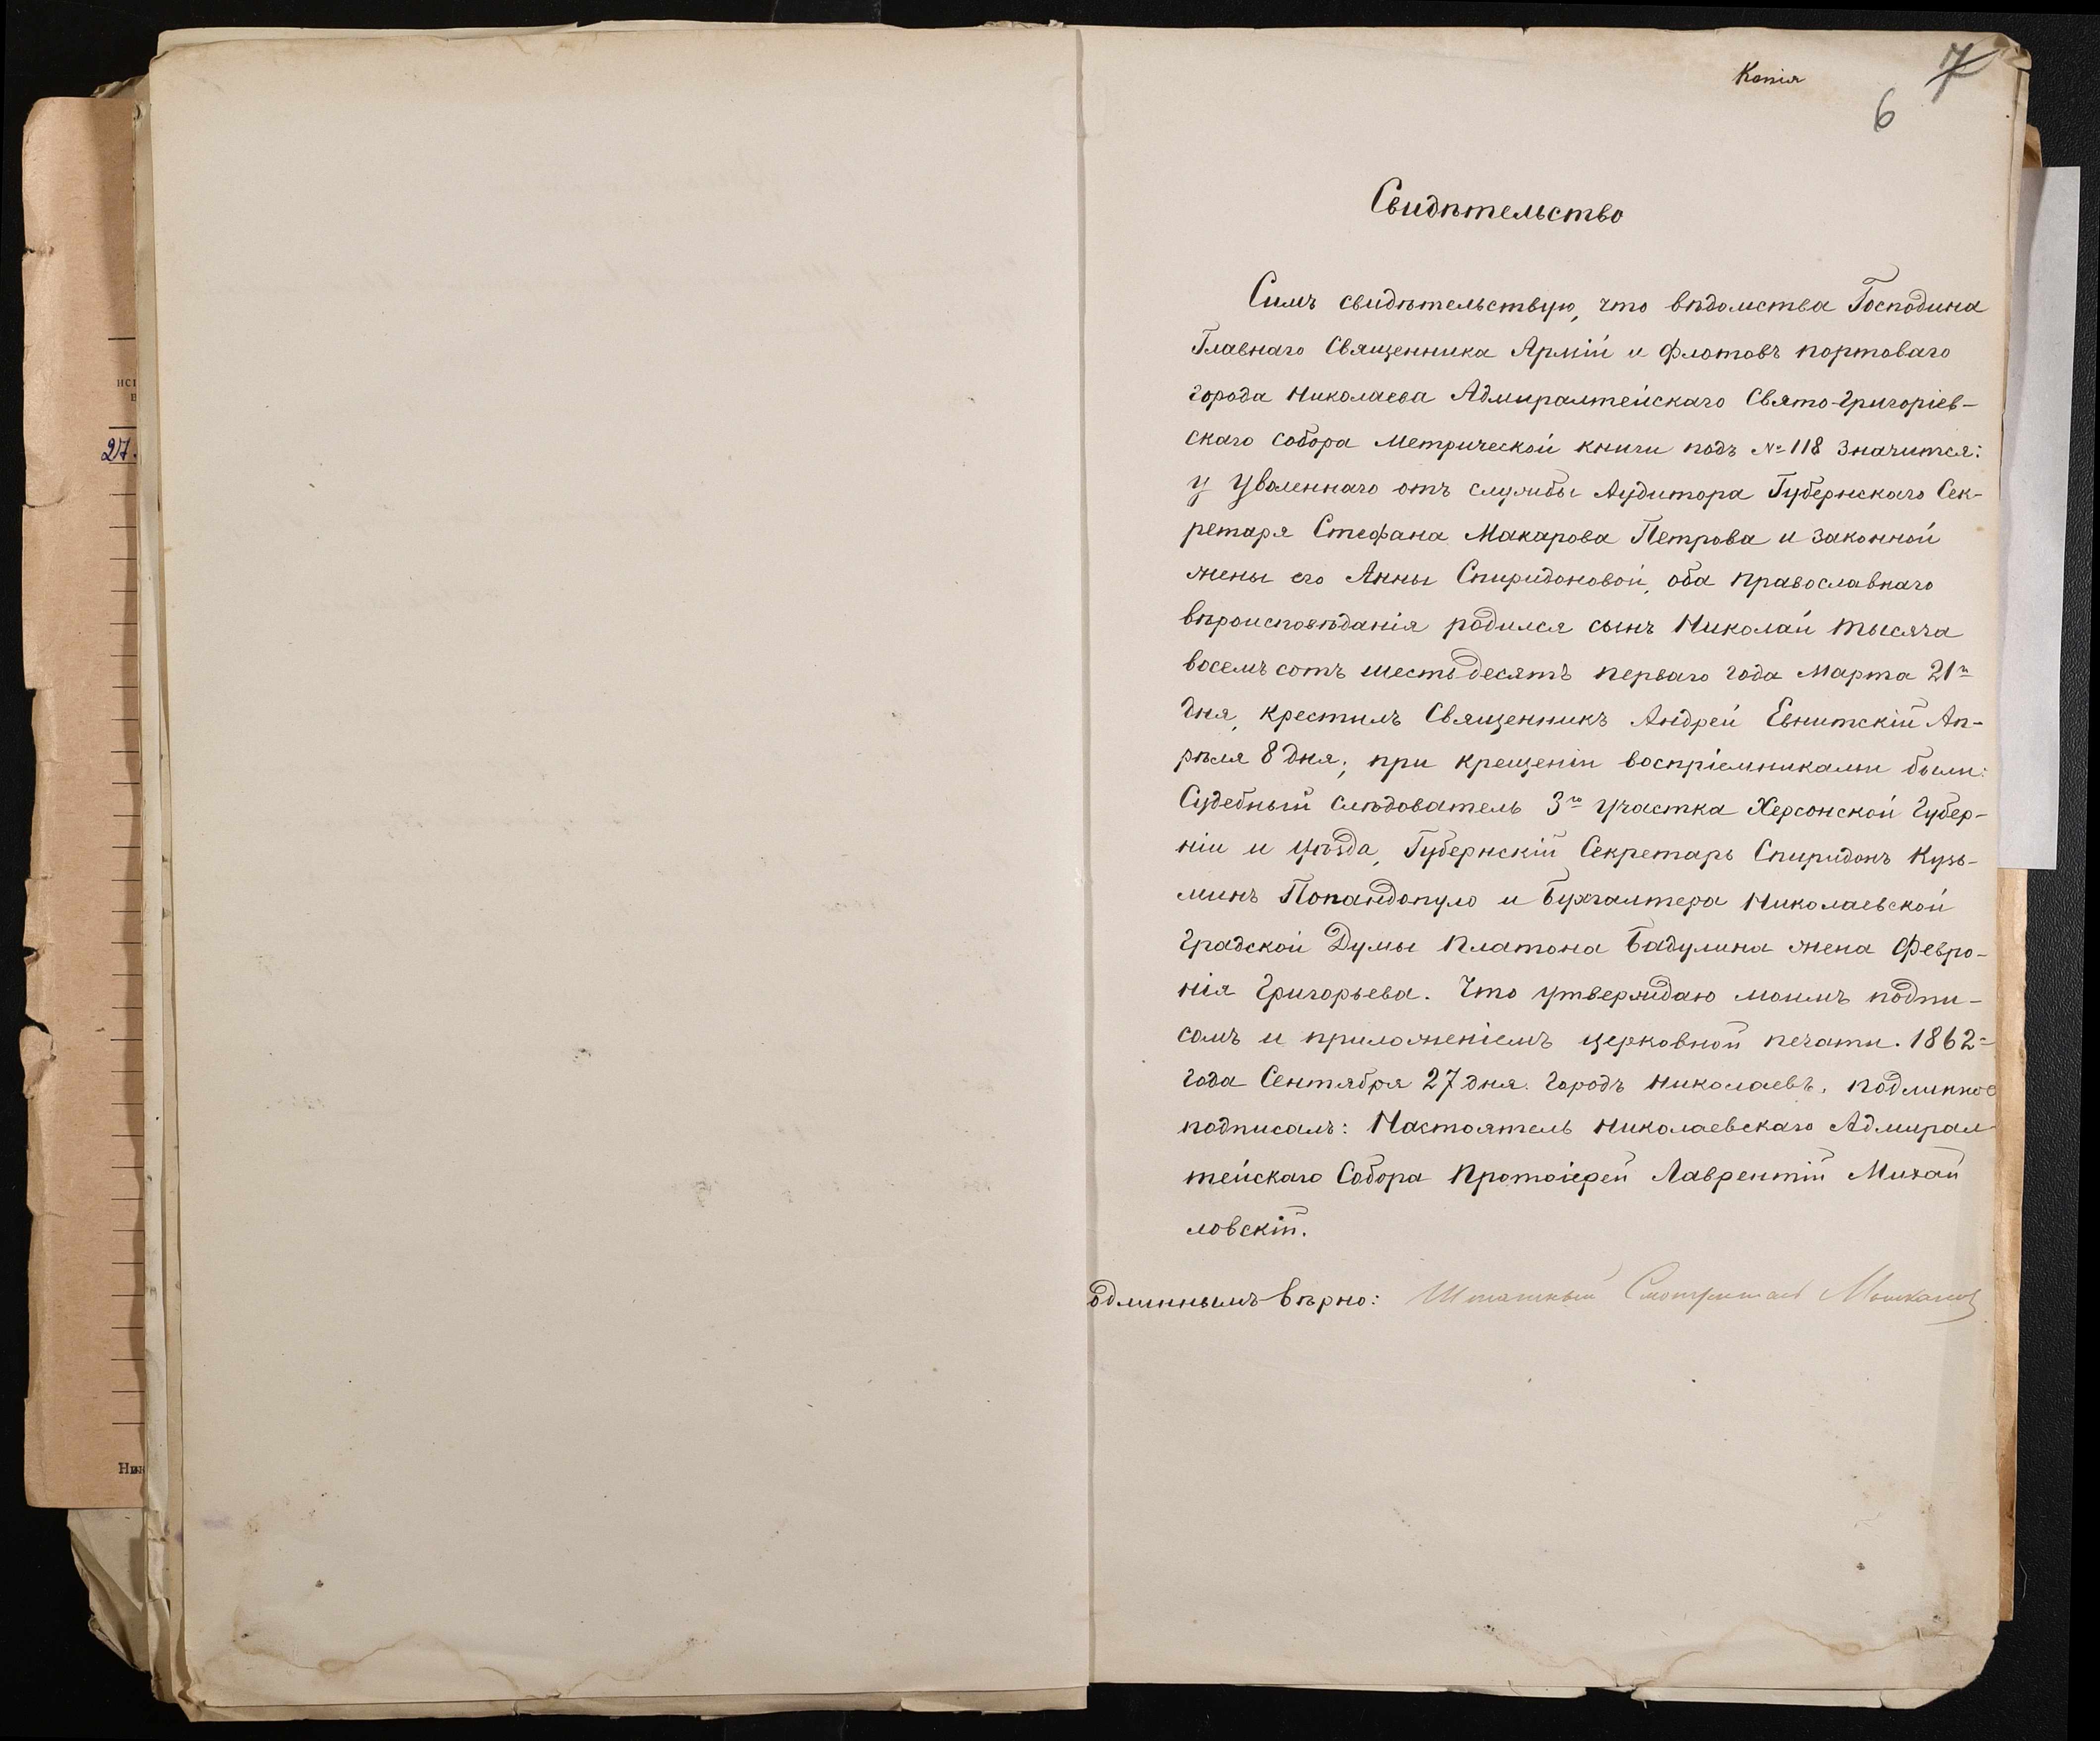 Копія
7
6
Свидѣтельство
Симъ свидѣтельствую, что вѣдомства Господина
Главнаго Священника Армій и флотовъ портоваго
города Николаева Адмиралтейскаго Свято-Григоріев-
скаго собора Метрической книги подъ № 118 значится:
у Уволеннаго отъ службы Аудитора Губернскаго Сек-
ретаря Стефана Макарова Петрова и законной
жены его Анны Спиридоновой, оба православнаго
вѣроисповѣданія родился сынъ Николай тысяча
восемъ сотъ шестьдесятъ перваго года Марта 21го
дня, крестилъ Священникъ Андрей Евнитскій Ап-
рѣля 8 дня; при крещеніи воспріемниками были:
Судебный слѣдователь 3го участка Херсонской Губер-
ніи и уѣзда, Губернскій Секретарь Спиридонъ Кузь-
минъ Попандопуло и Бухгалтера Николаевской
Градской Думы Платона Бадулина жена Февро-
нія Григорьева. Что утверждаю моимъ подпи-
сомъ и приложеніемъ церковной печати. 1862=
года Сентября 27 дня. городъ Николаевъ. подлинное
подписалъ: Настоятель Николаевскаго Адмирал
тейскаго Собора Протоіерей Лаврентій Михай
ловскій.
одлиннымъ вѣрно: Штатный Смотритель
27.